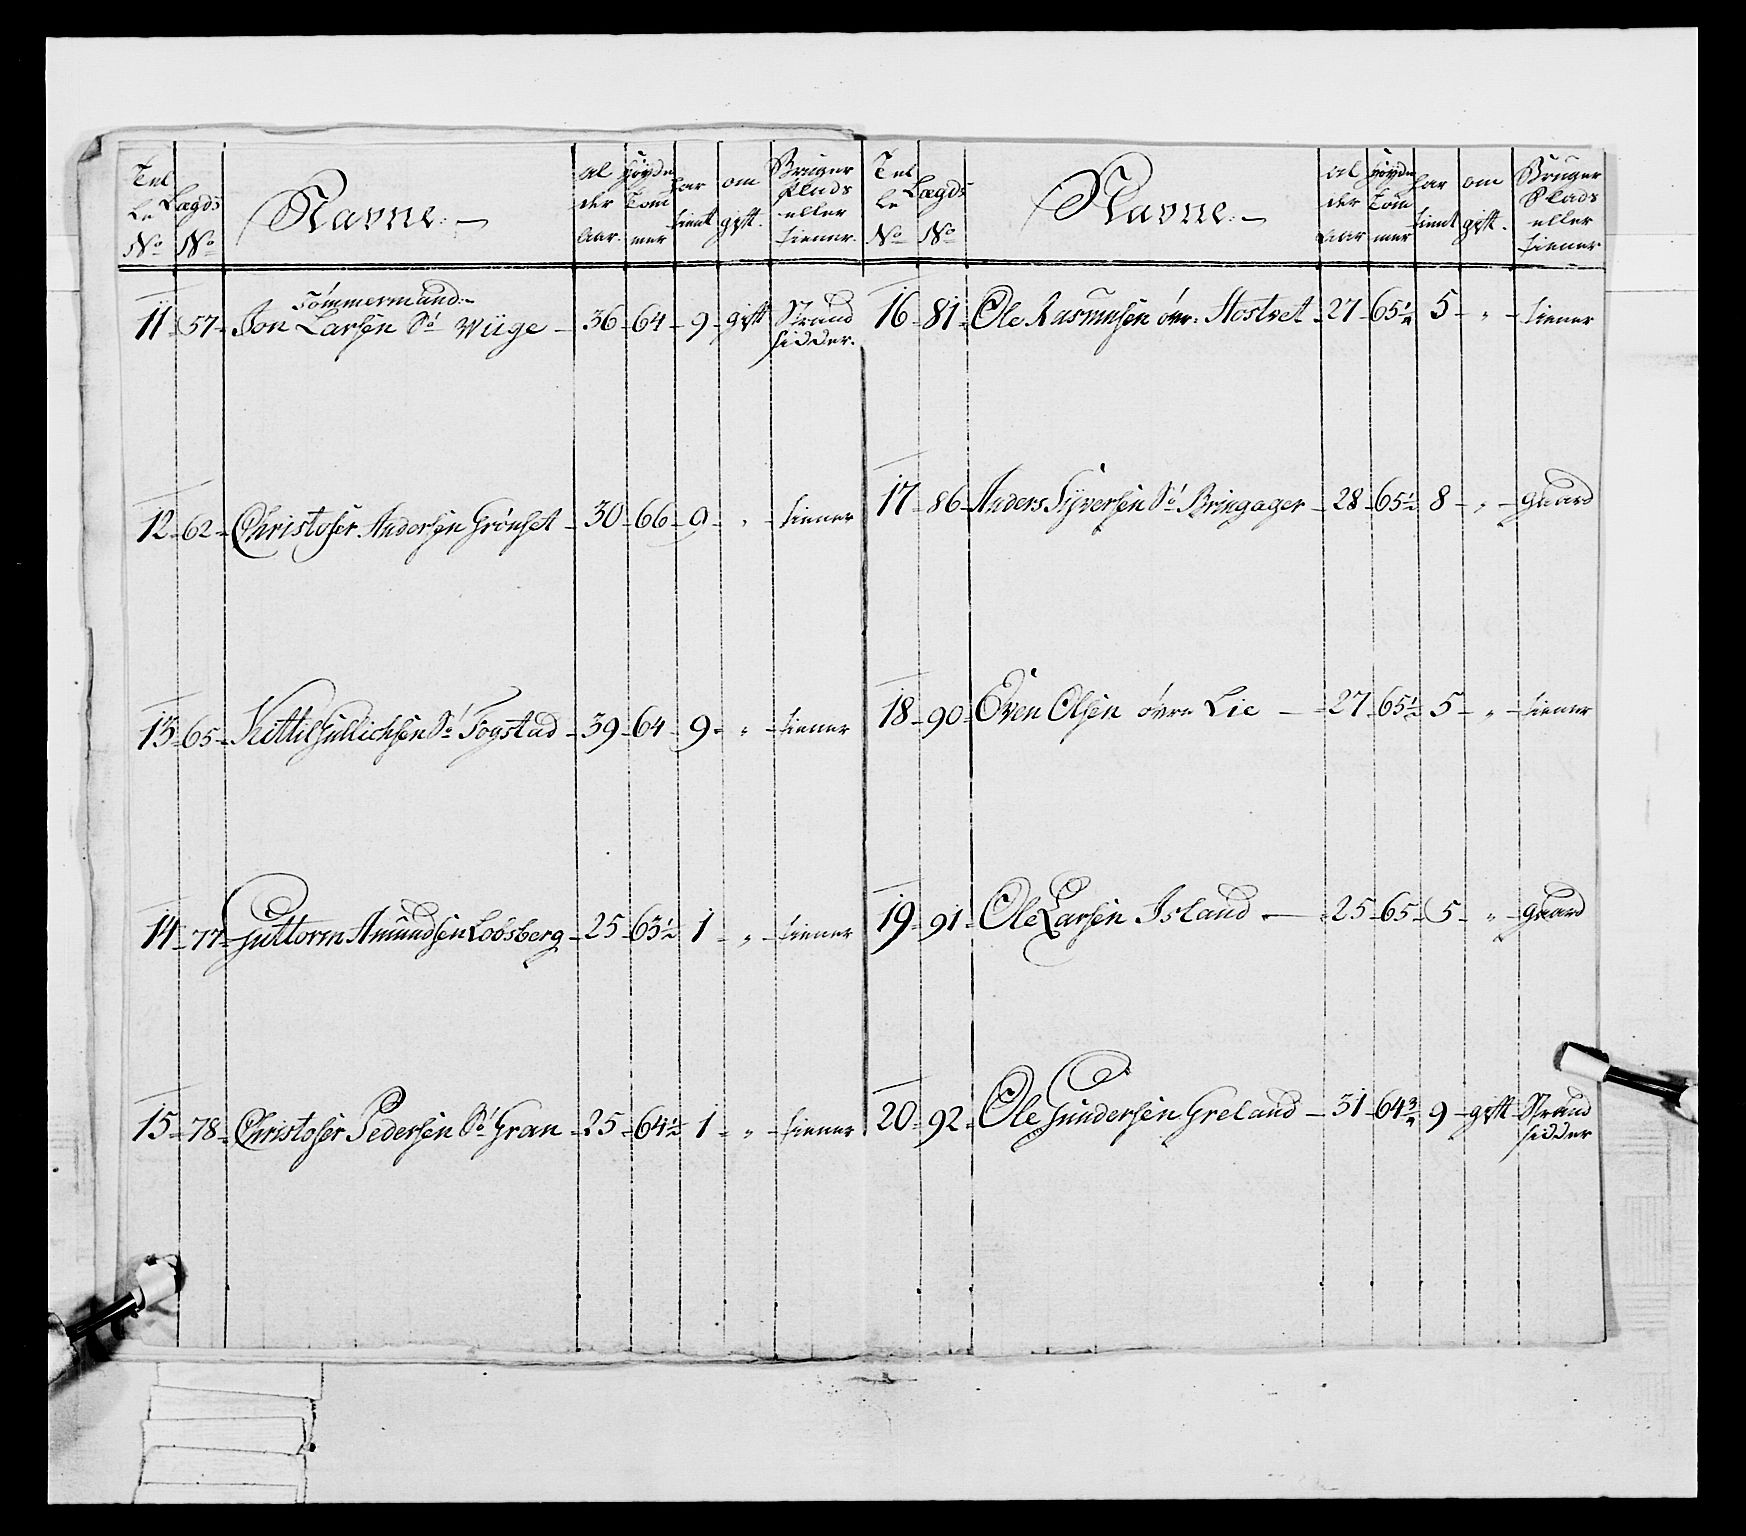 Tel le No | Lægds No | Navne. | al der Aar. | Høyde Tom mer | har tient | om gift. | Bruger Plads eller tiener.
11 - 57 - Tømmermand. Jon Larsen Sø Wiige - 36 - 64 - 9 - gift - Strand sidder.
12 - 62 - Christofer Andersen Grønset - 30 - 66 - 9 - " - tiener
13 - 65 - Kittil Gullichsen Sø Fogstad - 39 - 64 - 9 - " - tiener
14 - 77 - Guttorm Amundsen Loósberg - 25 - 63 1/2 - 1 - " - tiener
15 - 78 - Christofer Pedersen Sø Gran - 25 - 64 1/2 - 1 - " - tiener
Tel le No | Lægds No | Navne. | al der Aar | Høyde Tom mer | har tient | om gift. | Bruger Plads eller tiener
16 - 81 - Ole Rasmusen øvr. - 27 - 65 1/4 - 5 - " - tiener
17 - 86 - Anders Syversen Sø Bringager - 28 - 65 1/2 - 8 - " - gaard
18 - 90 - Even Olsen øvre Lie - 27 - 65 1/2 - 5 - " - tiener
19 - 91 - Ole Larsen Island - 25 - 65 - 5 - " - gaard
20 - 92 - Ole Gundersen Greland - 31 - 64 3/4 - 9 - gift - Strand sidder